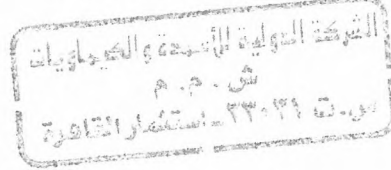 الشركة الدولية للأسمدة والكيماويات
ش . م . م
س.ت ٢٣٠٢٩ - استثمار القاهرة